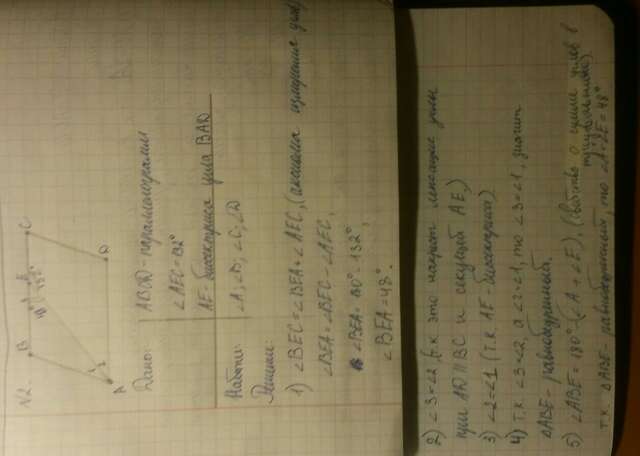 N2.
B E C
132°
A D
Дано: ABCD - параллелограмм
∠AEC = 132°
AE - биссектриса угла BAD
Найти: ∠A, ∠B, ∠C, ∠D
Решение:
1) ∠BEC = ∠BEA + ∠AEC, (аксиома измерения углов)
∠BEA = ∠BEC - ∠AEC,
∠BEA = 180° - 132°,
∠BEA = 48°.
2) ∠3 = ∠2 (т.к это накрест лежащие углы
при AD || BC и секущей AE,)
3) ∠2 = ∠1 (т.к AE - биссектриса)
4) т.к ∠3 = ∠2, а ∠2 = ∠1, то ∠3 = ∠1, значит
△ABE - равнобедренный.
5) ∠ABE = 180° - (∠A + ∠E), (свойство о сумме углов в
треугольнике).
т.к △ABE - равнобедренный, то ∠A = ∠E = 48°